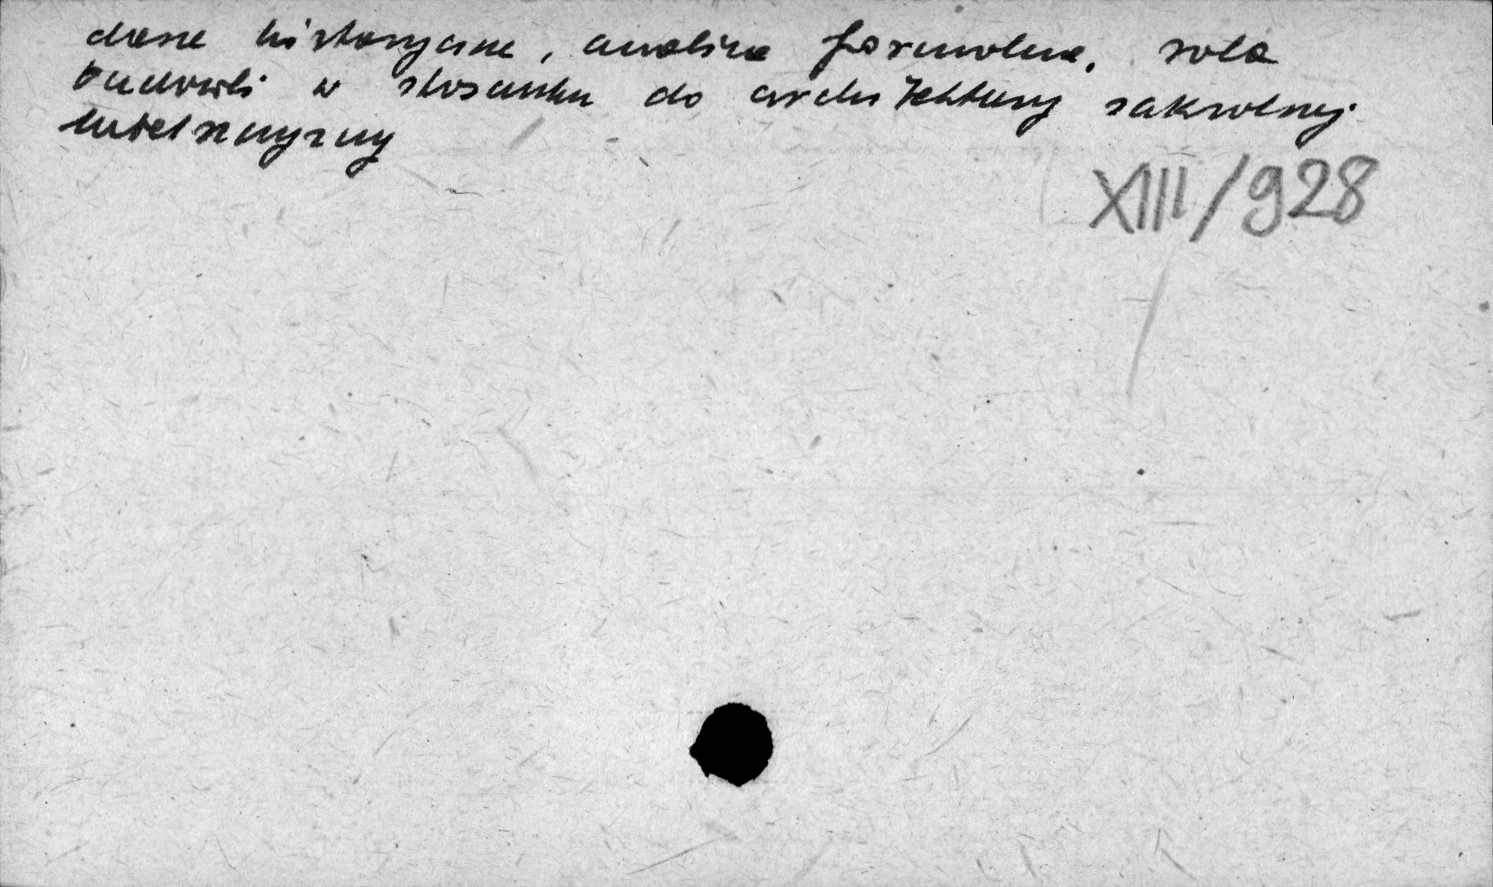 dane historyczne, analiza formalna, rola
budowli w stosunku do architektury sakralnej
Lubelszczyzny
XIII/928